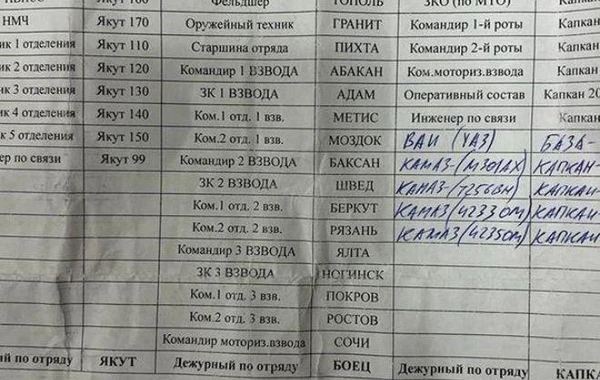 Фельдшер ТОПОЛЬ ЗКО (по МТО) Капкан
НМЧ Якут 170 Оружейный техник ГРАНИТ Командир 1-й роты Капкан
1 отделения Якут 110 Старшина отряда ПИХТА Командир 2-й роты Капкан
2 отделения Якут 120 Командир 1 ВЗВОДА АБАКАН Ком.моториз.взвода Капкан
3 отделения Якут 130 ЗК 1 ВЗВОДА АДАМ Оперативный состав Капкан 20
4 отделения Якут 140 Ком.1 отд. 1 взв. МЕТИС Инженер по связи Капкан
5 отделения Якут 150 Ком.2 отд. 1 взв. МОЗДОК ВАИ (УАЗ) БАЗА-
по связи Якут 99 Командир 2 ВЗВОДА БАКСАН КАМАЗ-(М301АХ) КАПКАН-
ЗК 2 ВЗВОДА ШВЕД КАМАЗ- КАПКАН-
Ком.1 отд. 2 взв. БЕРКУТ КАМАЗ(4233ОМ) КАПКАН-
Ком.2 отд. 2 взв. РЯЗАНЬ КАМАЗ(4235ОМ) КАПКАН-
Командир 3 ВЗВОДА ЯЛТА
ЗК 3 ВЗВОДА НОГИНСК
Ком.1 отд. 3 взв. ПОКРОВ
Ком.2 отд. 3 взв. РОСТОВ
Командир моториз.взвода СОЧИ
по отряду ЯКУТ Дежурный по отряду БОЕЦ Дежурный по отряду КАПКА